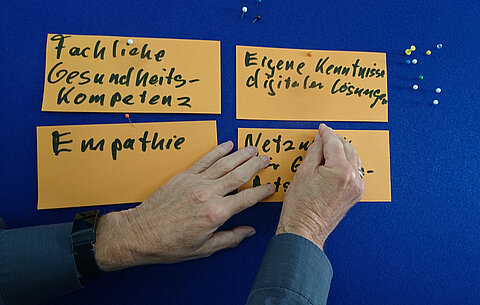 Fachliche
Gesundheits-
Kompetenz
Eigene Kenntnisse
digitaler Lösungen
Empathie